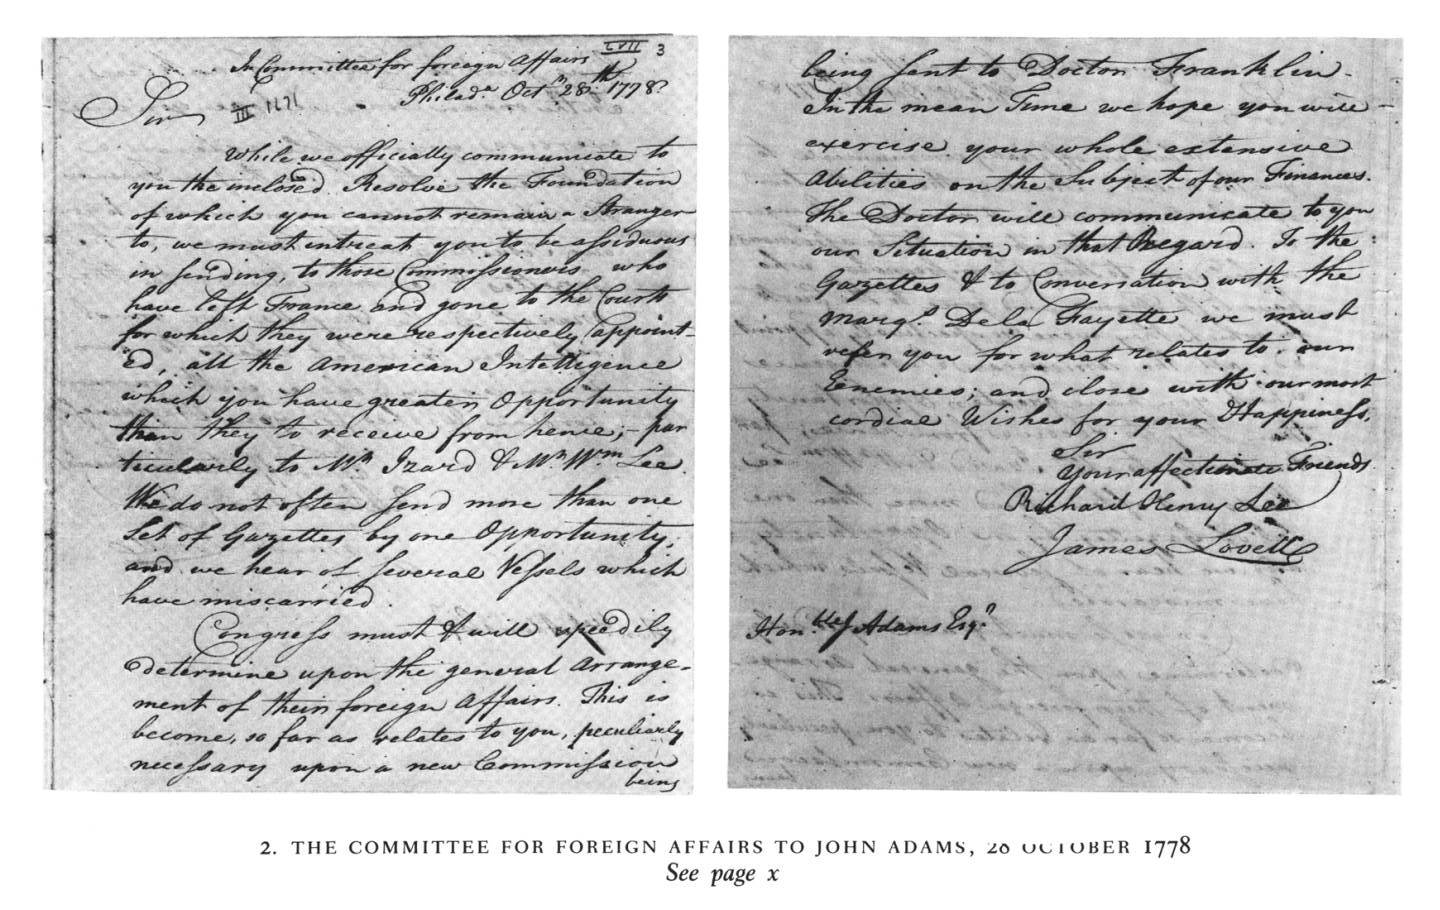 LVII 3
In Committee for foreign Affairs
Philad.a Oct.r 28.th 1778.
Sir
III
While we officially communicate to
you the inclosed Resolve the Foundation
of which you cannot remain a Stranger
to, we must intreat you to be assiduous
in sending, to those Commissioners who
have left France and gone to the Courts
for which they were respectively appoint-
ed, all the American Intelligence
which you have greater Opportunity
than they to receive from hence;- par
ticularly to Mr. Izard & Mr. Wm. Lee.
We do not often send more than one
Set of Gazettes by one Opportunity,
and we hear of several Vessels which
have miscarried.
Congress must & will speedily
determine upon the general Arrange-
ment of their foreign Affairs. This is
become, so far as relates to you, peculiarly
necessary upon a new Commission
being
being sent to Doctor Franklin.
In the mean Time we hope you will
exercise your whole extensive
Abilities on the Subject of our Finances.
The Doctor will communicate to you
our Situation in that Regard. To the
Gazettes & to Conversation with the
Marqs. De la Fayette we must
refer you for what relates to our
Enemies; and close with our most
cordial Wishes for your Happiness,
Sir
Your affectionate Friends
Richard Henry Lee
James Lovell
Hon.ble J Adams Esqr.
2. THE COMMITTEE FOR FOREIGN AFFAIRS TO JOHN ADAMS, 28 OCTOBER 1778
See page x